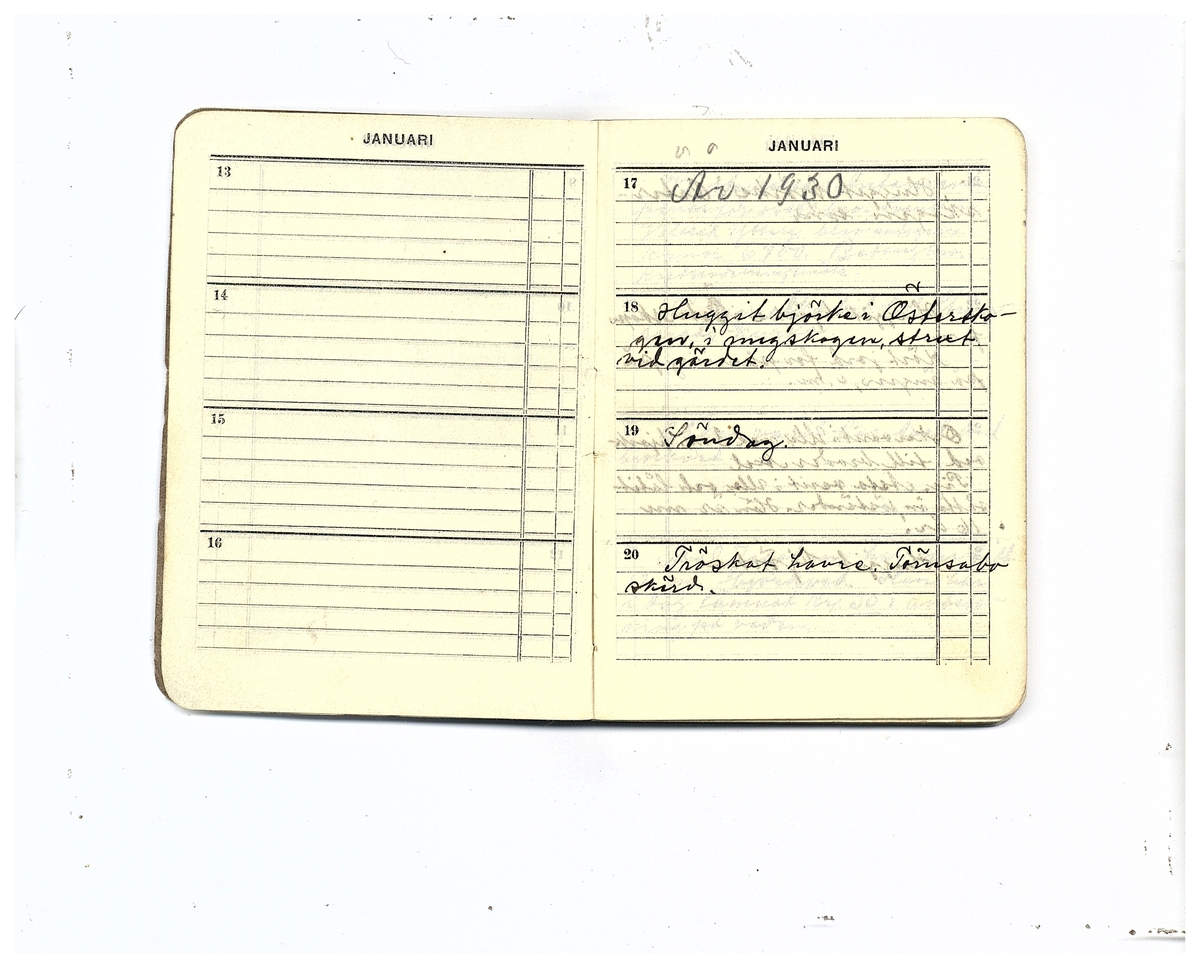 JANUARI
13
14
15
16
JANUARI
17 År 1930
18 Huggit björke i Östersko-
gen, i ungskogen, straxt
vid gärdet.
19 Söndag.
20 Tröskat havre. Törnsabo
skörd.